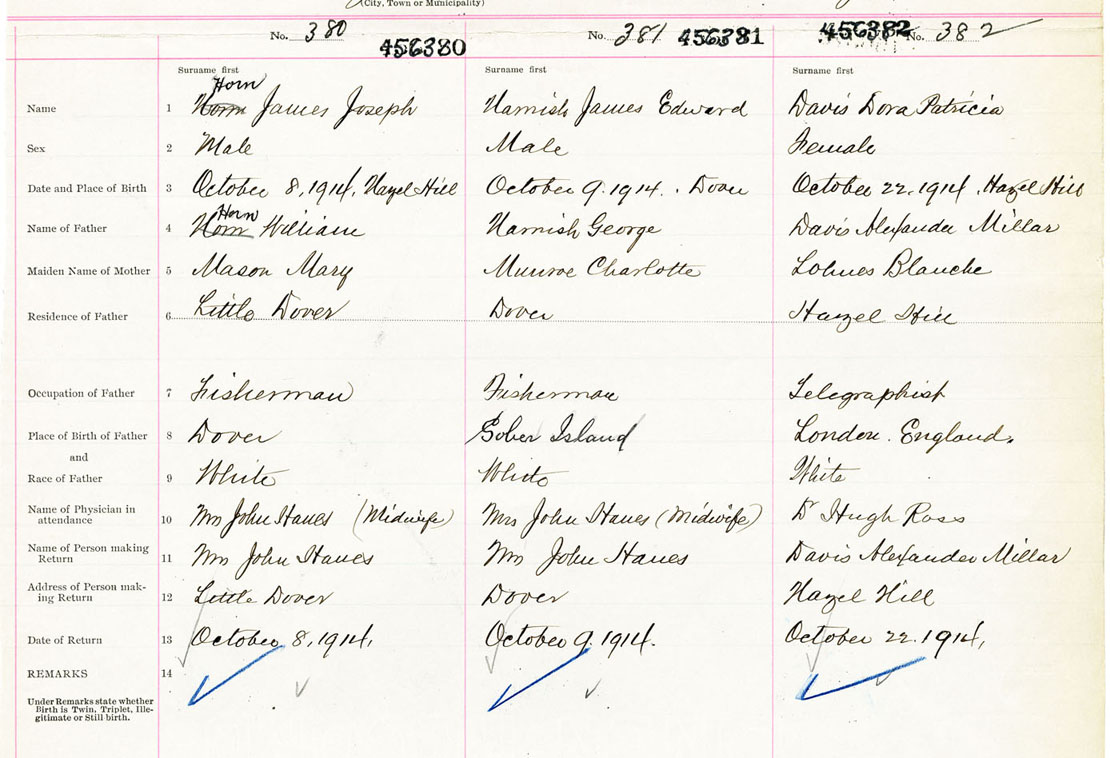 (City, Town or Municipality)
No. 380 456380 No. 381 456381 456382 No. 382
Surname first Surname first Surname first
Horn
Name 1 Horn James Joseph Harnish James Edward Davis Dora Patricia
Sex 2 Male Male Female
Date and Place of Birth 3 October 8, 1914, Hazel Hill October 9. 1914. Dover October 22, 1914, Hazel Hill
Horn
Name of Father 4 Horn William Harnish George Davis Alexander Millar
Maiden Name of Mother 5 Mason Mary Munroe Charlotte Lohnes Blanche
Residence of Father 6 Little Dover Dover Hazel Hill
Occupation of Father 7 Fisherman Fisherman Telegraphist
Place of Birth of Father 8 Dover Sober Island London. England.
and
Race of Father 9 White White White
Name of Physician in
attendance 10 Mrs John Hanes (Midwife) Mrs John Hanes (Midwife) Dr Hugh Ross
Name of Person making
Return 11 Mrs John Hanes Mrs John Hanes Davis Alexander Millar
Address of Person mak-
ing Return 12 Little Dover Dover Hazel Hill
Date of Return 13 October 8, 1914, October 9. 1914. October 22. 1914,
REMARKS 14
Under Remarks state whether
Birth is Twin, Triplet, Ille-
gitimate or Still birth.